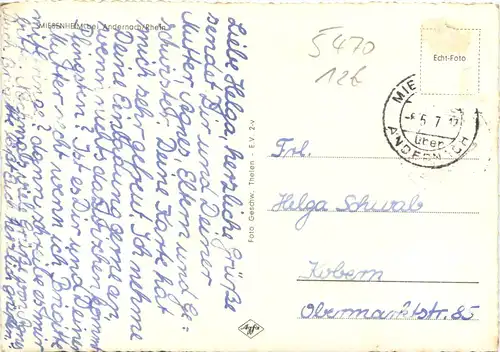 MIESENHEIM bei Andernach/Rhein
Liebe Helga, herzliche Grüße
sendet Dir und Deiner
Mutter Agnes, Eltern und Ge-
schwister. Deine Karte hat
mich sehr gefreut. Ich nehme
Deine Einladung gerne an,
wenn nichts dazwischen kommt.
Ist es Dir und Deiner
Mutter recht wenn ich Brigitte
mitbringe? dann schreibe es mir
Foto Geschw. Thelen - E. Nr. 2v
Agfa
5470
12€
Echt-Foto
MIE
-6.5.7
über
ANDERNACH
Frl.
Helga Schwab
Kobern
Obermarktstr. 85